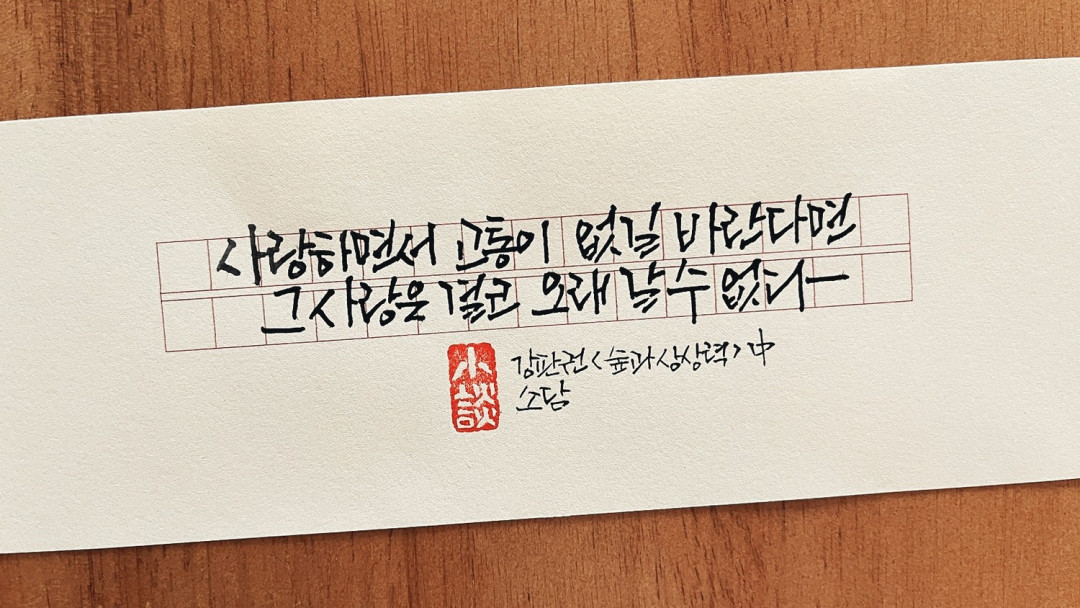 사랑하면서 고통이 없길 바란다면
그 사랑은 결코 오래 갈 수 없다
강판권 <숲과 상상력> 中
소담
小談